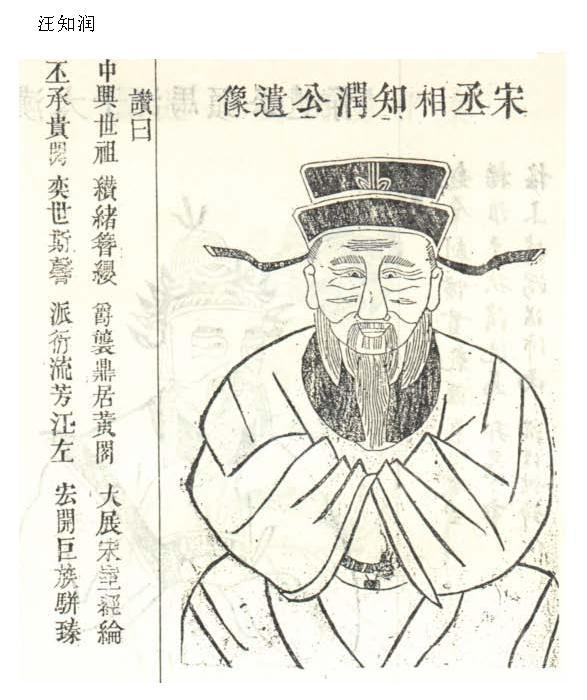 汪知润
宋丞相知潤公遺像
讚曰
中興世祖 纉緒簪纓 爵襲鼎居黃閣 大展宋室經綸
丕承貴閥 奕世斯馨 派衍流芳江左 宏開巨族駢臻